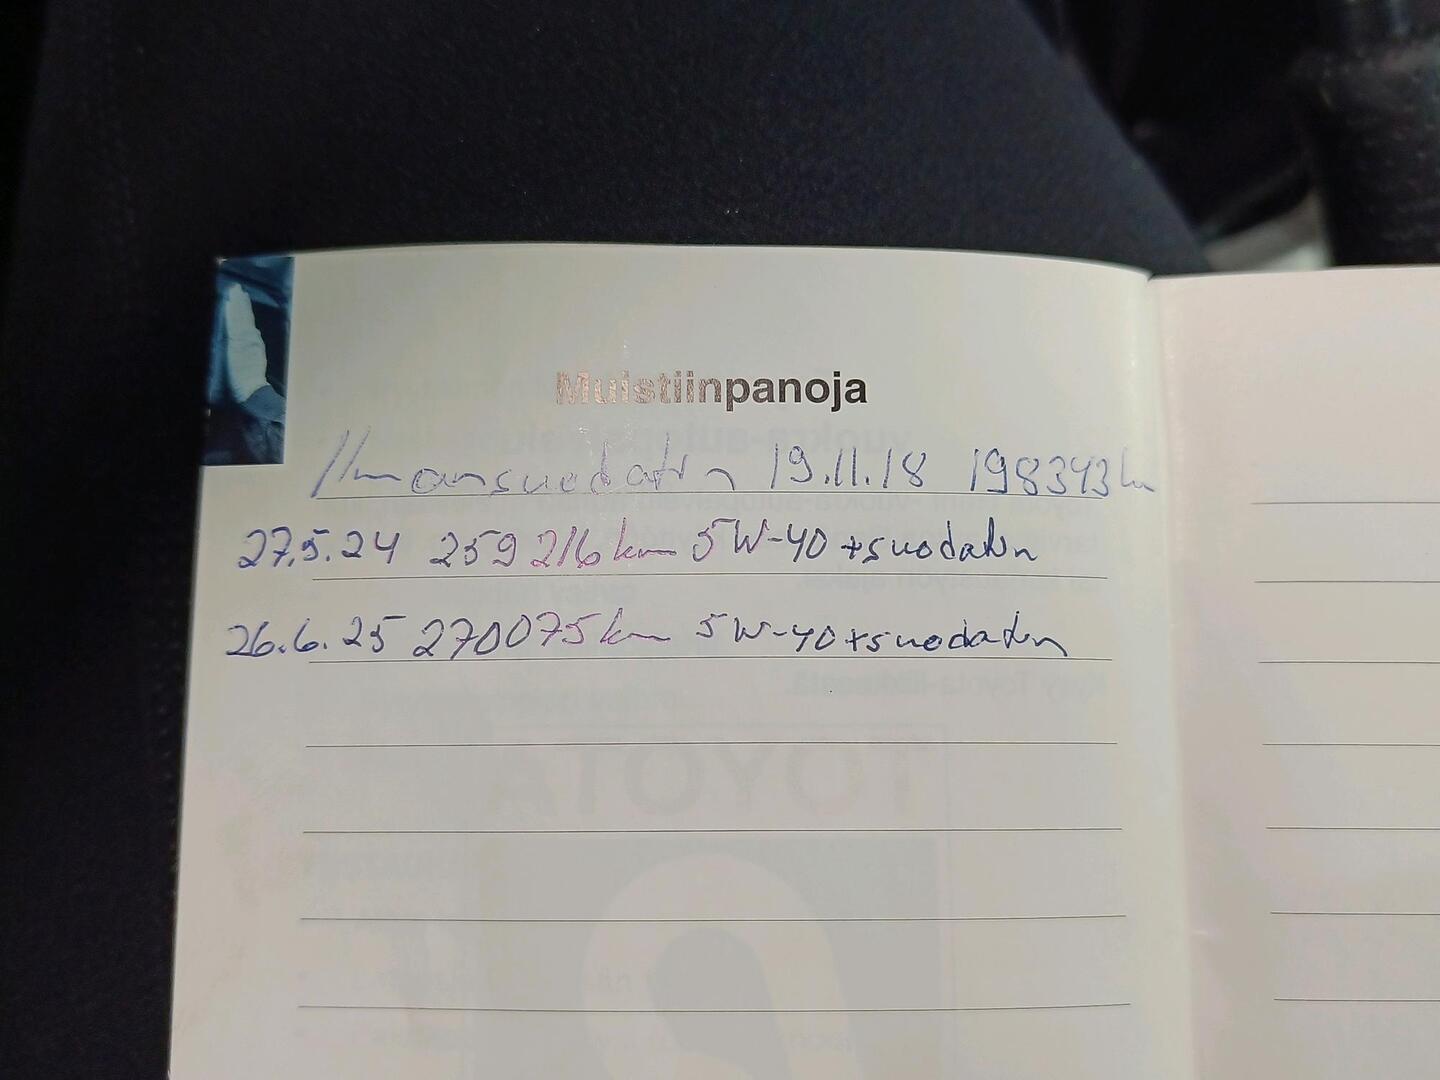 Muistiinpanoja
Ilmansuodatin 19.11.18 198343km
27.5.24 259216km 5W-40 +suodatin
26.6.25 270075km 5W-40+suodatin